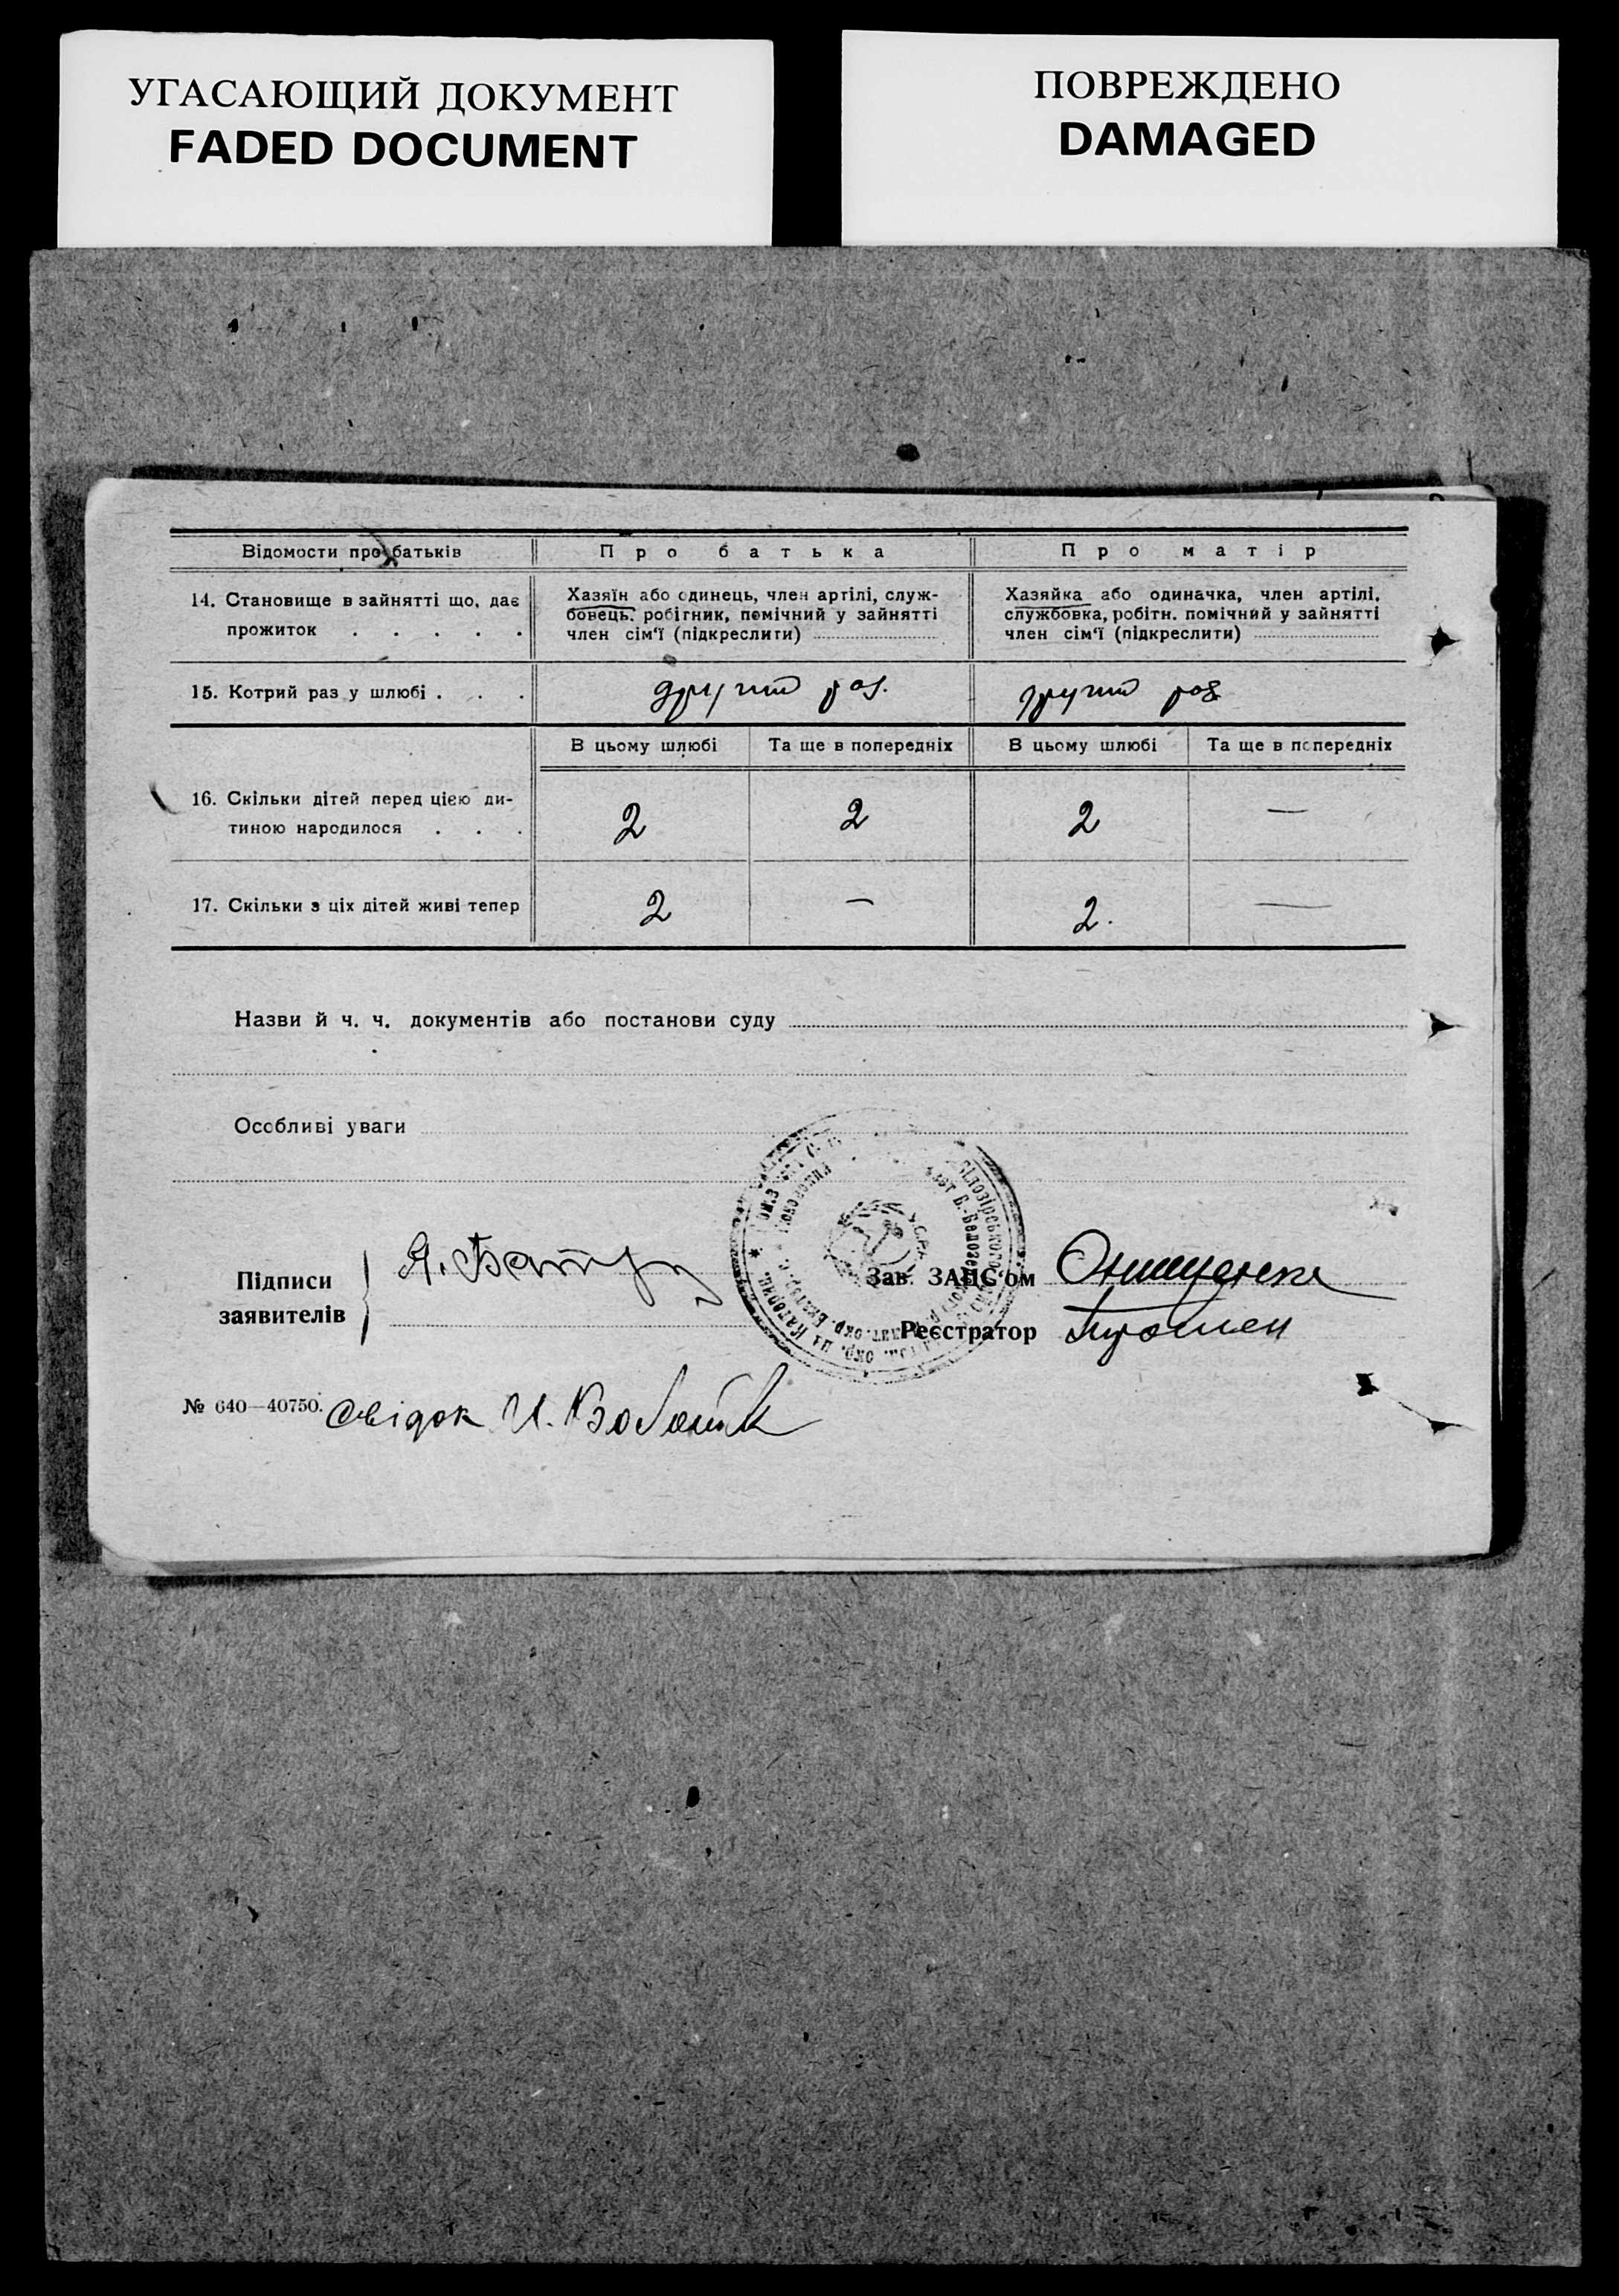 УГАСАЮЩИЙ ДОКУМЕНТ
FADED DOCUMENT
ПОВРЕЖДЕНО
DAMAGED
Відомости про батьків
Про батька
Про матір
14. Становище в зайнятті що, дає
прожиток . . . . .
Хазяїн або одинець, член артілі, служ-
бовець. робітник, помічний у зайнятті
член сім'ї (підкреслити)
Хазяйка або одиначка, член артілі,
службовка, робітн. помічний у зайнятті
член сім'ї (підкреслити)
15. Котрий раз у шлюбі . . .
другий раз.
другий раз
В цьому шлюбі
Та ще в попередніх
В цьому шлюбі
Та ще в попередніх
16. Скільки дітей перед цією ди-
тиною народилося . . .
2
2
2
—
17. Скільки з ціх дітей живі тепер
2
—
2.
—
Назви й ч. ч. документів або постанови суду
Особливі уваги
Підписи
заявителів
Зав. ЗАПС'ом Онищенко
Реєстратор
№ 640—40750.
свідок